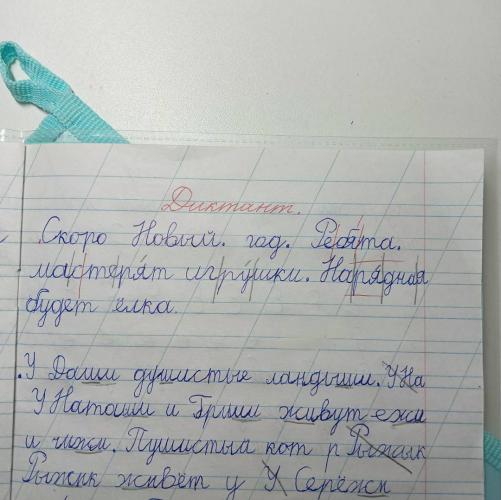 Диктант.
Скоро Новый. год. Ребята.
мастерят игрушки. Нарядная
будет ёлка.
.У Даши душистые ландыши. У На
У Наташи и Гриши живут ежи
и чижи. Пушистый кот р Рыжык
Рыжик живёт у У Серёжи